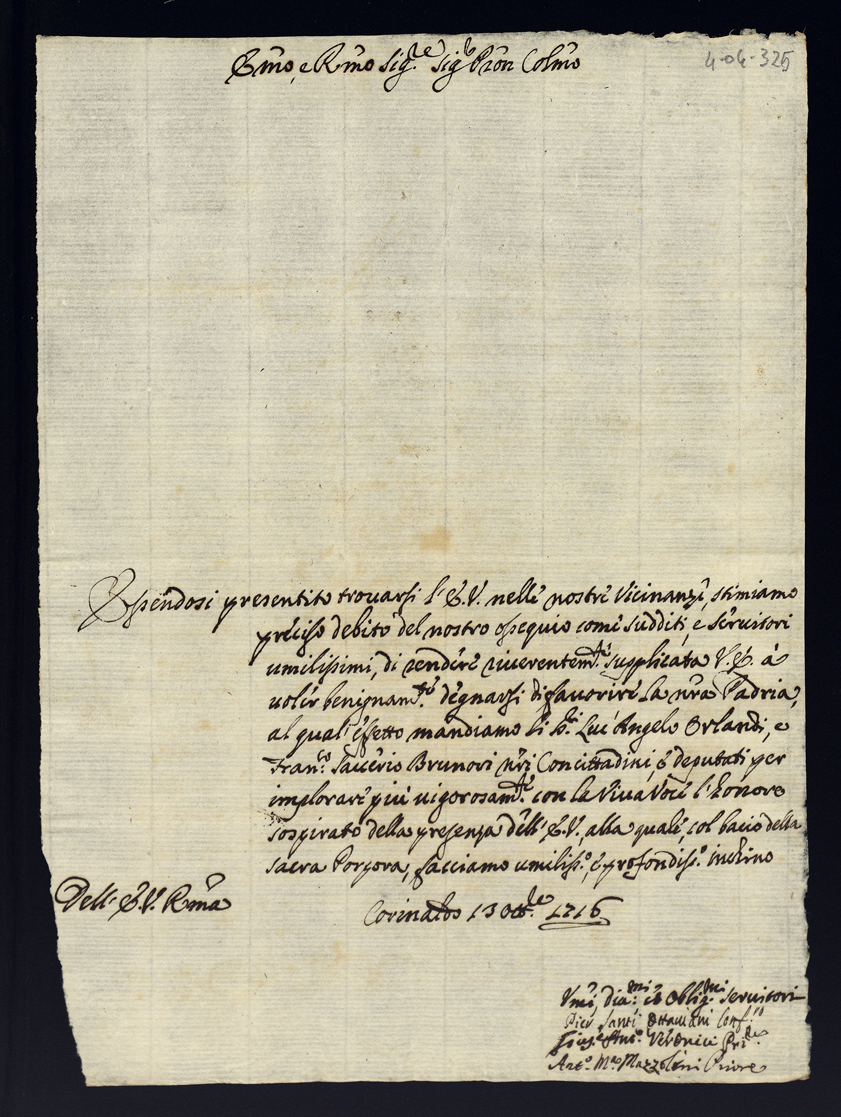 Emo, e Rmo Sigre Sigr Pron Colmo
4-04-325
Essendosi presentito trovarsi l'E.V. nelle nostre Vicinanze, stimiamo
preciso debito del nostro ossequio come sudditi, e servitori
umilissimi, di rendere riverentemte supplicata V.E. à
voler benignamte degnarsi di favorire la nra Padria,
al qual' effetto mandiamo li Sri Luc'Angelo Orlandi, e
Franco Saverio Brunori nri Concittadini, e deputati per
implorare più vigorosamte con la viva voce l'honore
sospirato della presenza dell'E.V., alla quale, col bacio della
sacra Porpora, facciamo umilisso, e profondisso inchino
Dell'E.V. Rma
Corinaldo 13 Ottbre 1716
Vmi, Diami et Obligmi Servitori
Pier Santi Ottaviani Confro
Antо Ma Mazzolini Priore